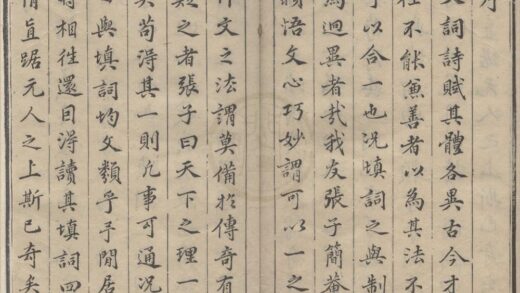 序
文詞詩賦其體各異古今才
往不能兼善者以為其法不
乎以合一也況填詞之與制
為迥異者哉我友張子簡菴
穎悟文心巧妙謂可以一之
作文之法謂莫備於傳奇有
疑之者張子曰天下之理一
矣苟得其一則凡事可通況
與填詞均文類乎予閒居
時相徃還因得讀其填詞四
情直踞元人之上斯已奇矣